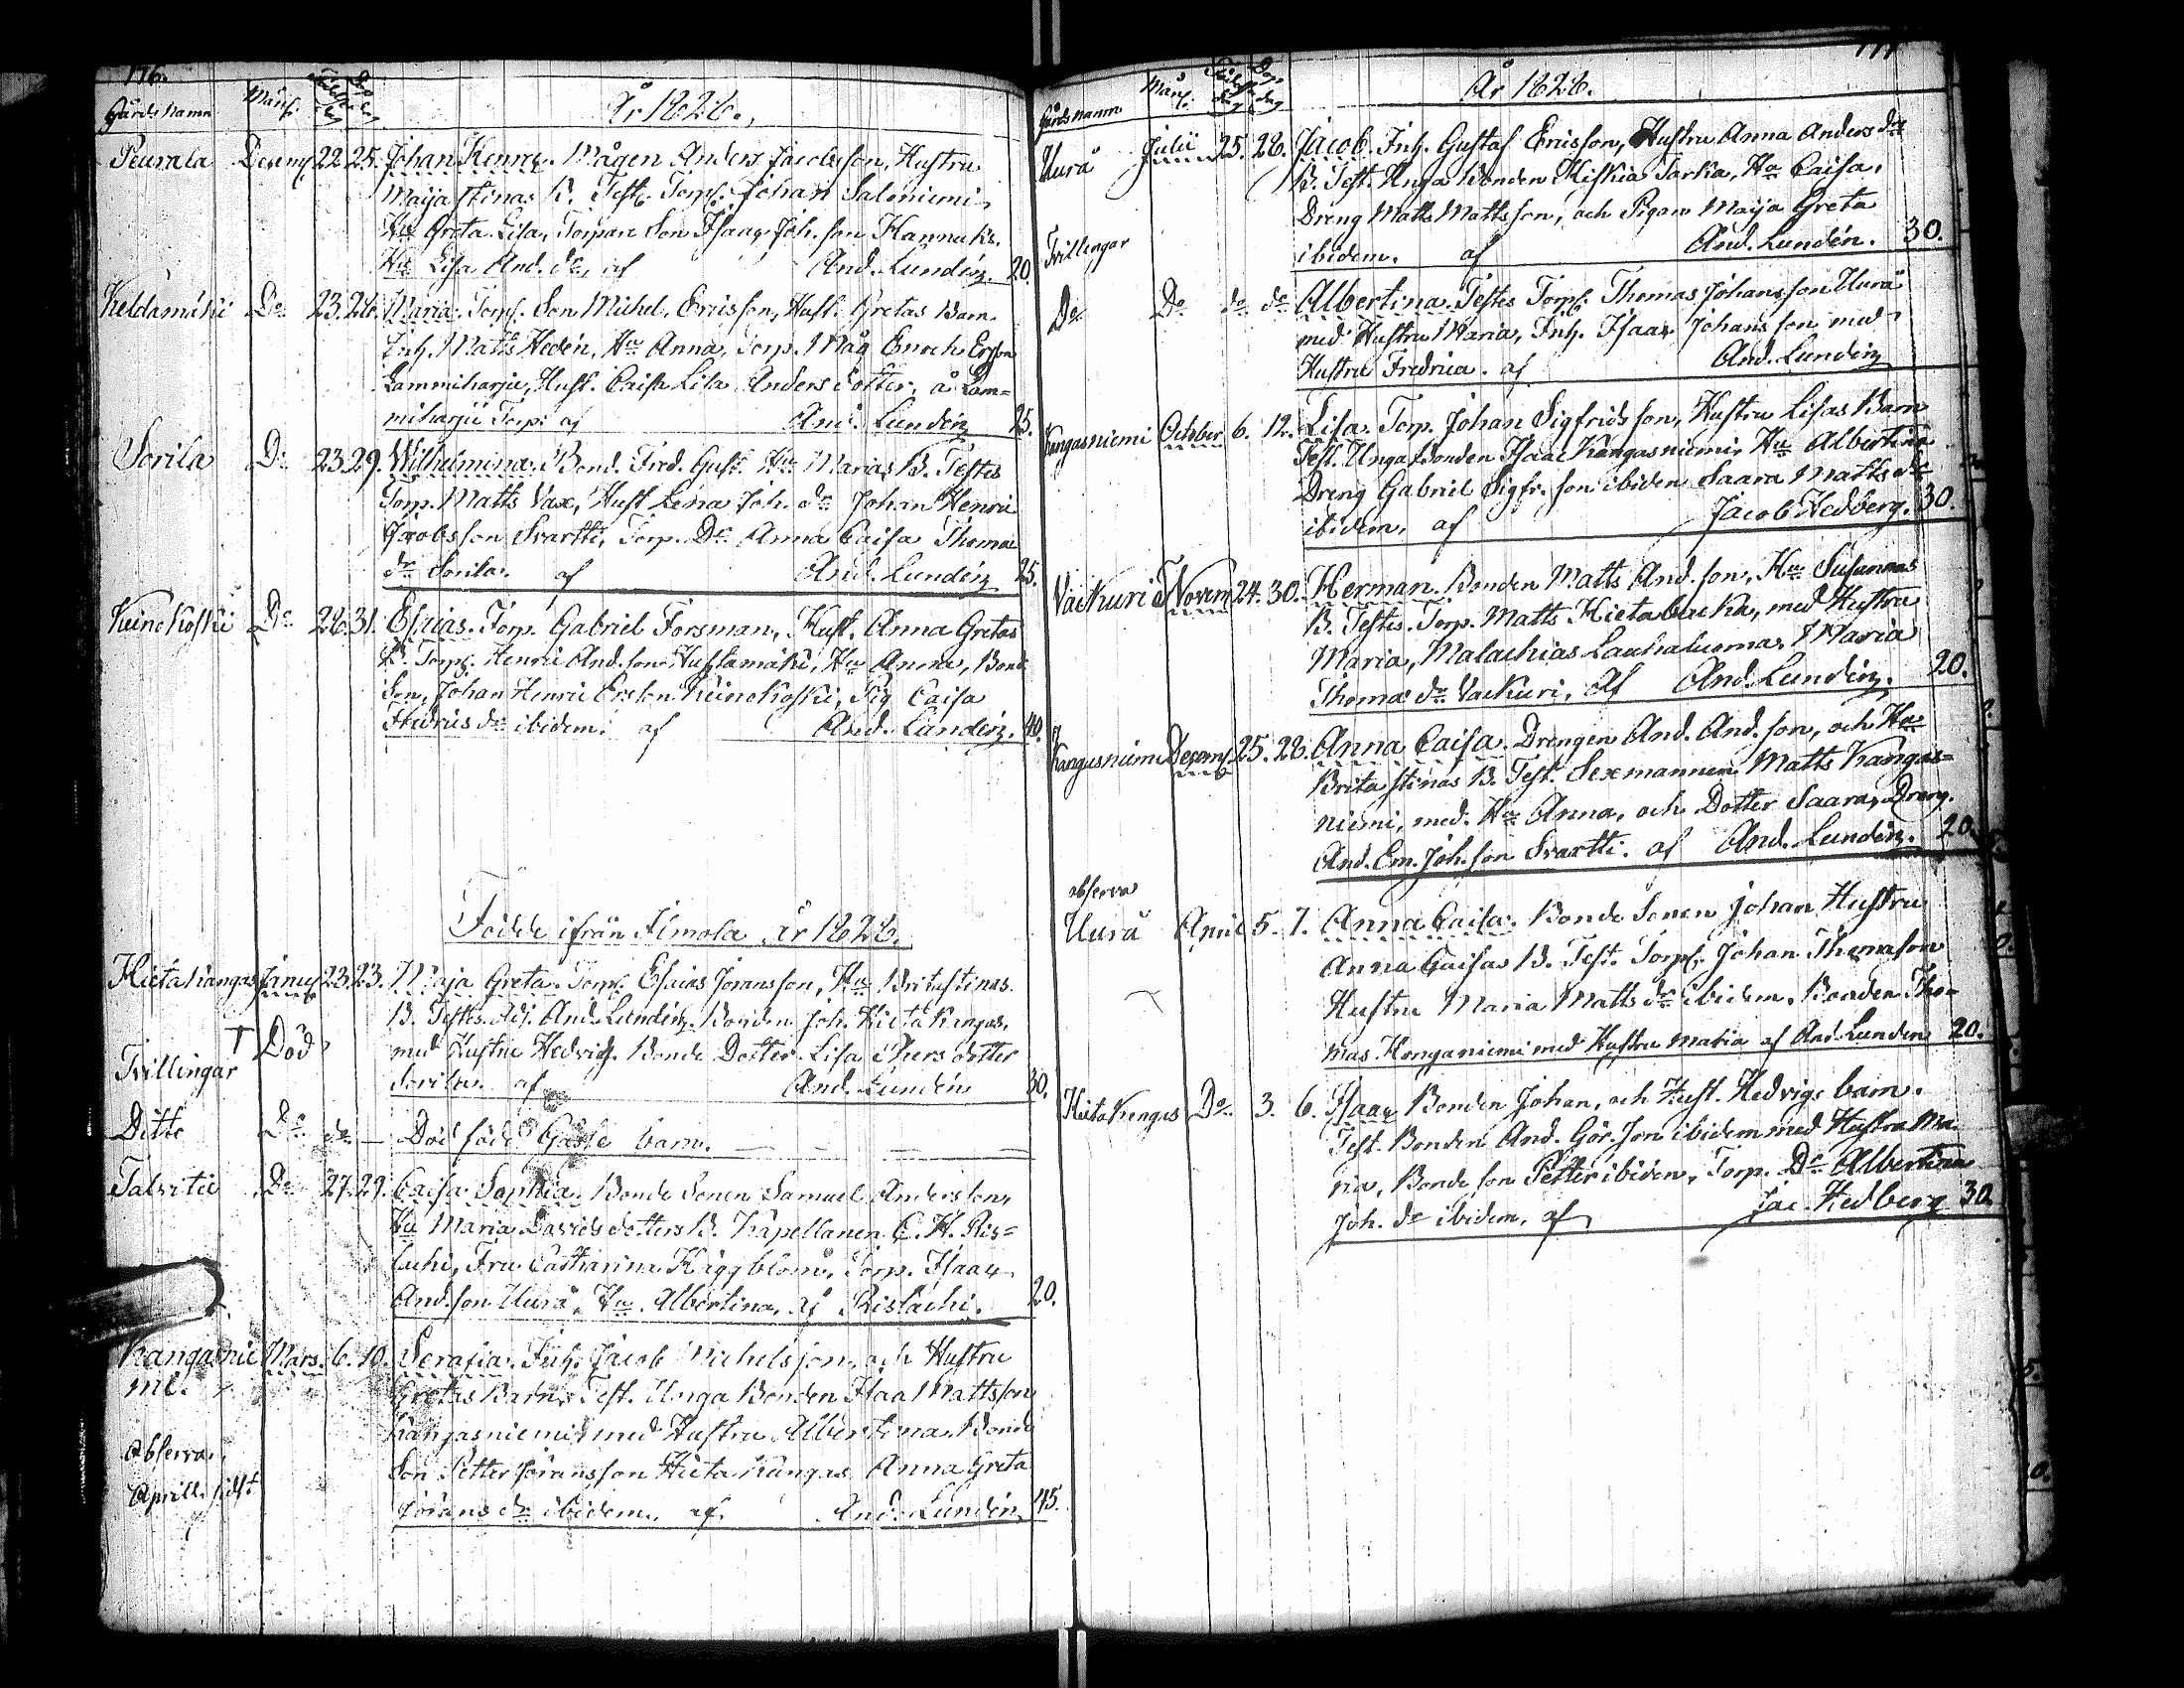 176.
Gårds Namn Mån. Födelse dag Dop dag År 1828.
Peurala Decemb 22. 25. Johan Henric. Mågen Anders Jacobsson, Hustru
Maija Stinas B. Test. Torp. Johan Saloniemi
Hu Greta Lisa, Torpare Son Isaac Joh.son Hannuks.
Hu Lisa And. dr, af And. Lundén. 20.
Keldamäki Do 23. 26. Maria. Torp. Son Michel Ericsson, Hust. Gretas Barn.
Inh. Matts Hedén, Hu Anna, Torp. Måg Enoch Erson
Lammiharju, Hust. Caisa Lisa Anders dotter, å Lam=
miharju Torp. af And. Lundén 25.
Sorila Do 23. 29. Wilhelmina. Bond. Fred. Gust. Hu Marias B. Testes
Torp. Matts Vax, Hust Lena Joh. dr Johan Henric
Jacobsson Svartti, Torp. Dr Anna Caisa Thomas
dr Sorila. af And. Lundén 25.
Keinokoski Do 28. 31. Esaias. Torp. Gabriel Forsman, Hust. Anna Gretas
B. Torp. Henric And.son Hustamäki, Hu Anna, Bond
Son, Johan Henric Erson Keinokoski, Pig Caisa
Fredrics dr ibidem. af And. Lundén. 40.
Födde ifrån Simola år 1828.
Hietakangas Januar 23. 23. Maja Greta. Torp. Esaias Joransson, Hu Brita Stinas.
B. Testes. Adj. And. Lundén. Bonden Joh. Hietakangas,
T Död med Hustru Hedvig. Bonde Dotter Lisa Ehers dotter
Tvillingar Sorila. af And. Lundén 30.
Ditto Do do — Död född Gåsse barn. — — — —
Talvitie Do 27. 29. Caisa Sophia. Bonde Sonen Samuel Andersson,
Hu Maria Davids dotters B. Kapellanen C. H. Ris=
lachi, Fru Catharina Häggblom, Torp. Isaac
And.son Uurä, Hu Albertina, af Rislachi. 20.
Kangasnie Mars. 6. 10. Serafia. Inh. Jacob Michelsson, och Hustru
mi. Gretas Barn, Test. Unga Bonden Isaa Mattsson
Kangasniemi med Hustru Albertina. Bonde
observa. Son Petter Joransson Hietakangas Anna Greta
Aprill sidst Jörans dr ibidem. af And. Lundén 45.
177
Gårds namn Mån. Födelse dag Dop dag År 1828.
Uurä Julii 25. 28. Jacob. Inh. Gustaf Ericsson, Hustru Anna Anders drs
B. Test. Unga Bonden Hiskia Tarka, Hu Caisa,
Dreng Matts Mattsson, och Pigan Maija Greta
Tvillingar ibidem. af And. Lundén. 30.
Do Do do do Albertina. Testes Torp. Thomas Johansson Uurä
med Hustru Maria, Inh. Isaac Johansson med
Hustru Fredrica. af And. Lundén
Kangasniemi October 6. 12. Lisa. Torp. Johan Sigfridsson, Hustru Lisas Barn
Test. Unga Bonden Isaac Kangasniemi, Hu Albertina
Dreng Gabriel Sigfr.son ibidem Saara Matts dr
ibidem. af Jacob Hedberg. 30.
Vackuri T Novem 24. 30. Herman. Bonden Matts And.son, Hu Susannas
B. Testes. Torp. Matts Hietabacka, med Hustru
Maria, Malachias Lauhaluoma. Maria
Thomas dr Vackuri. Af And. Lundén. 20.
Kangasniemi Decemb 25. 28. Anna Caisa. Drengen And. And.son, och Hu
Brita Stinas B. Test. Sexmannen Matts Kangas=
niemi, med. Hu Anna, och Dotter Saara, Dreng.
And. Em. Joh.son Svartti. af And. Lundén. 20.
observa
Uurä April 5. 7. Anna Caisa. Bonde Sonen Johan Hustru
Anna Caisas B. Test. Torp. Johan Thomasson
Hustru Maria Matts dr ibidem. Bonden Tho=
mas Konganiemi med Hustru Maria af And Lundén 20.
Hietakangas Do 3. 6. Isaac Bonden Johan, och Hust. Hedvigs barn.
Test. Bonden And. Gör.son ibidem med Hustru Ma=
ria, Bonde son Petter ibidem, Torp. Dr Albertina
Joh. dr ibidem. af Jac Hedberg 30.